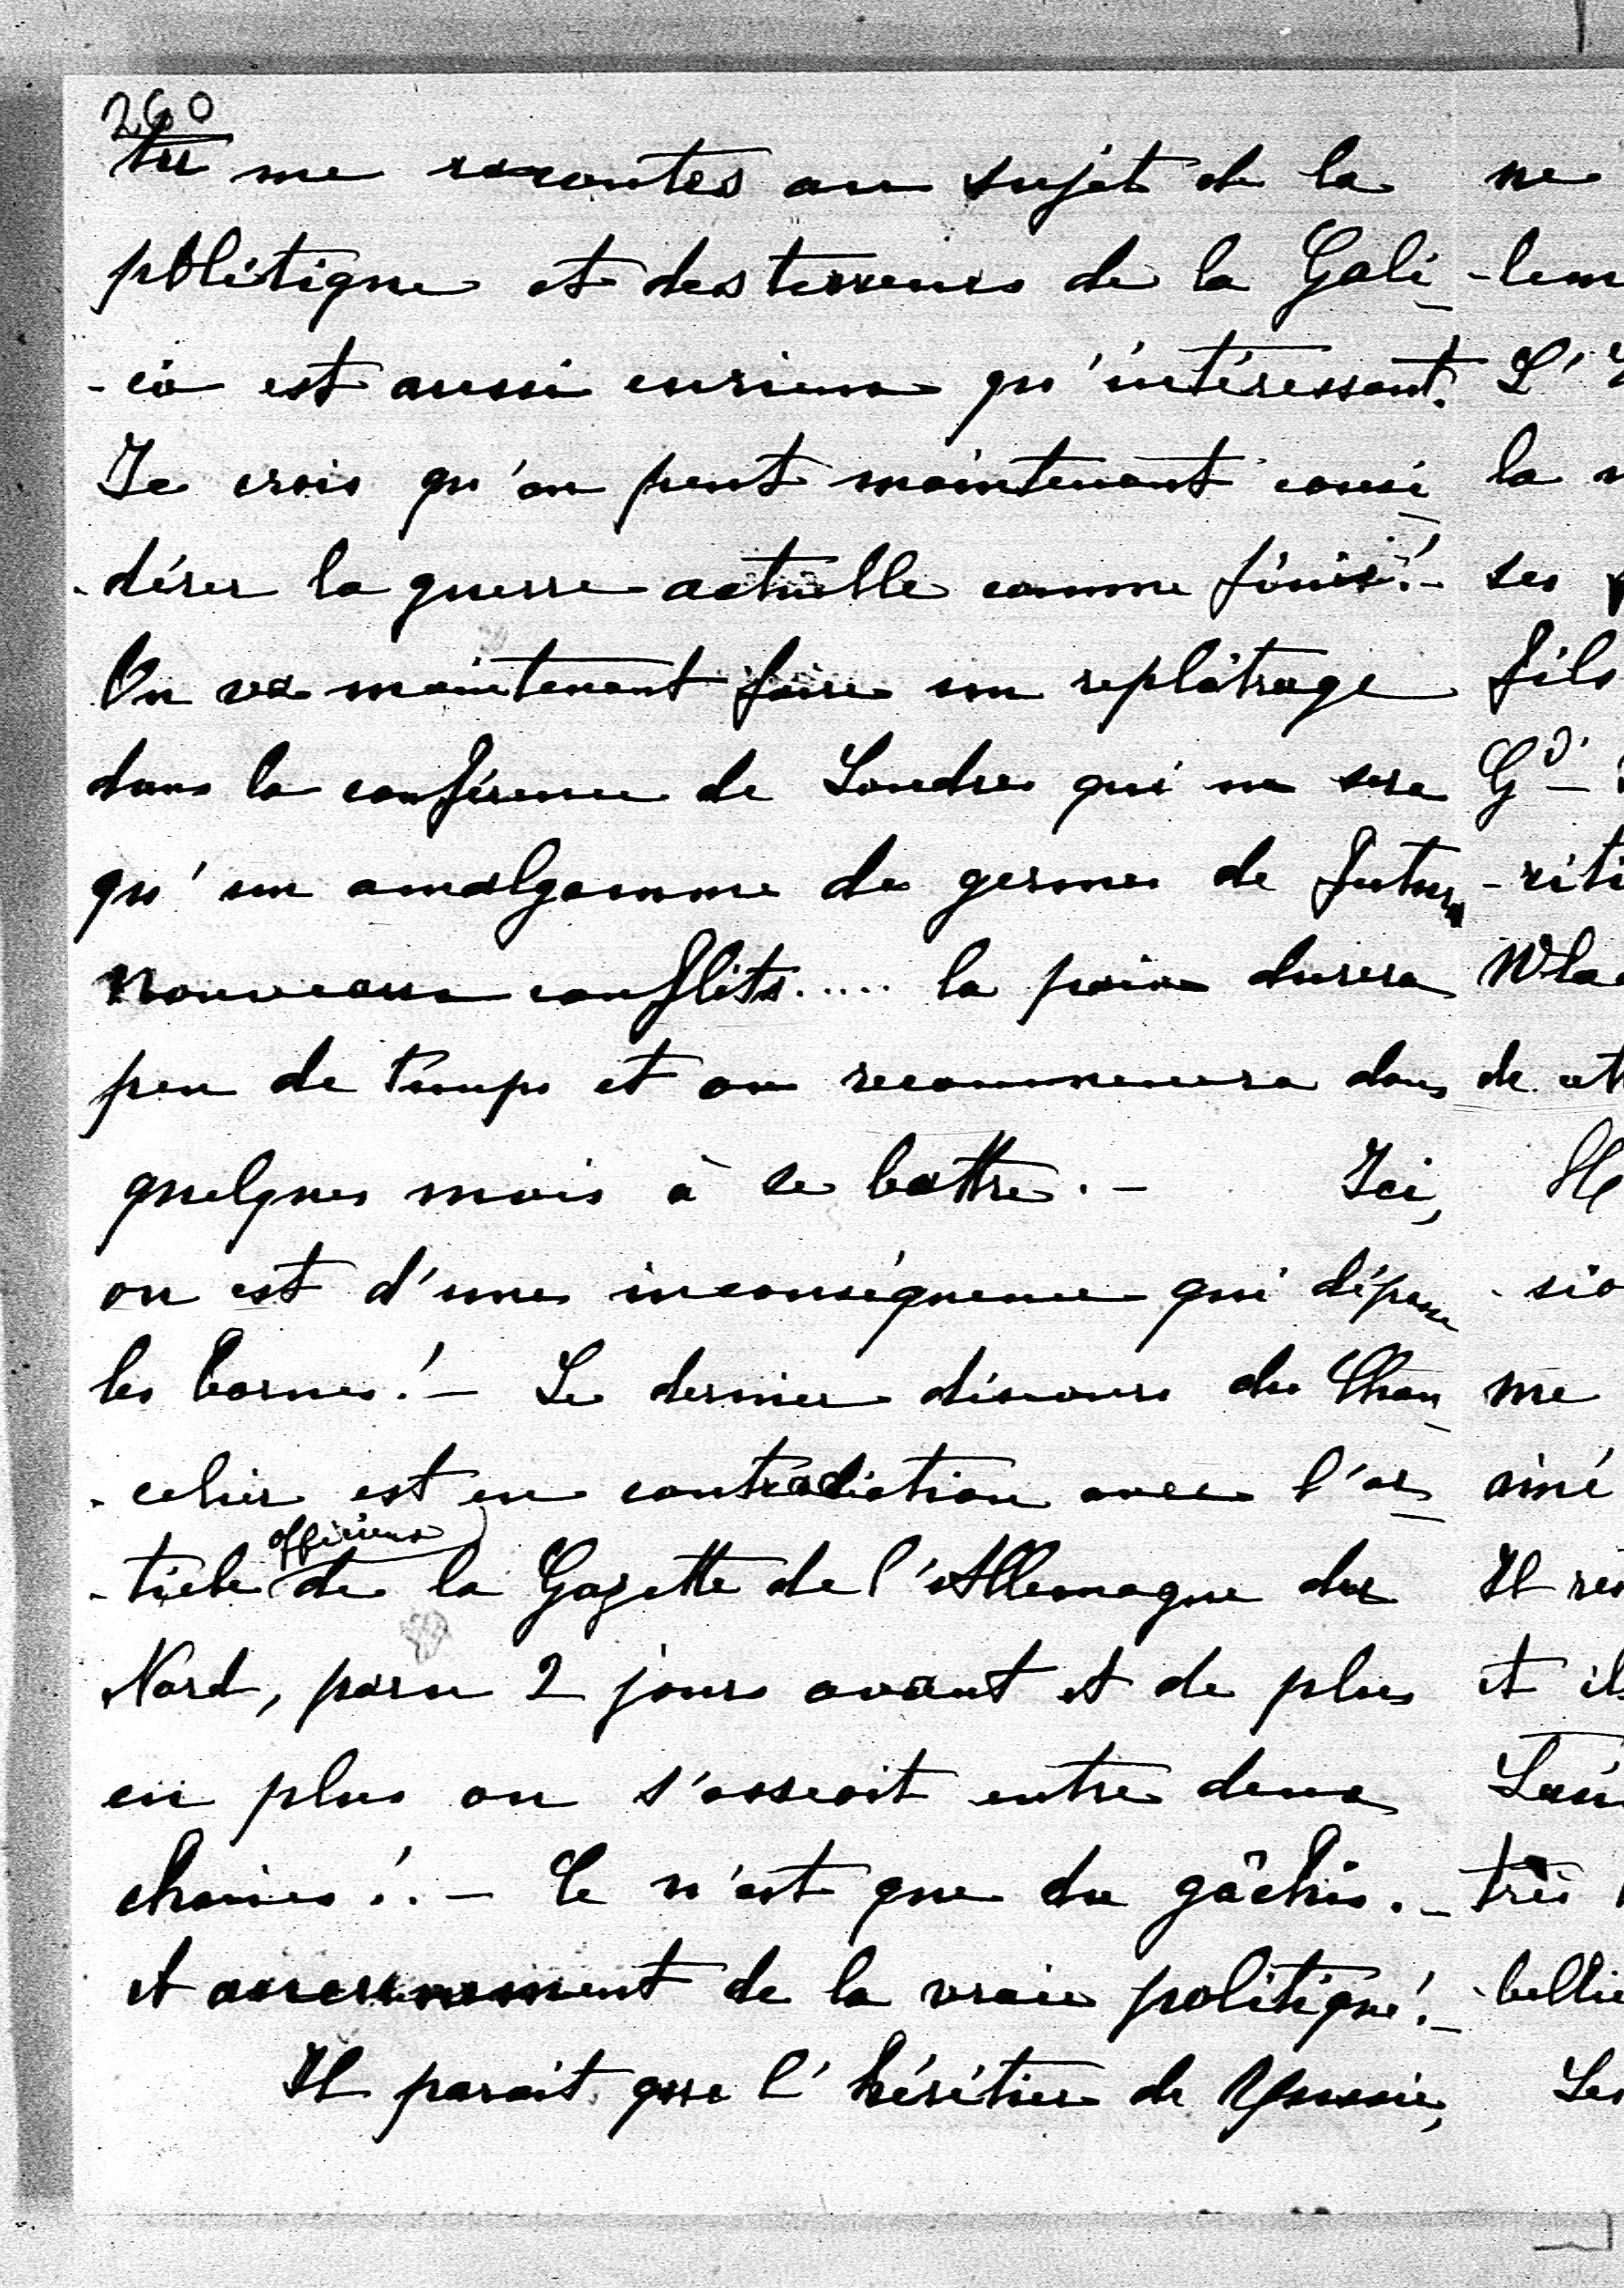 260
tu me racontes au sujet de la
politique et des terreurs de la Gali-
-cie est aussi curieux qu'intéressant.
Je crois qu'on peut maintenant consi-
-dérer la guerre actuelle comme finie! -
On va maintenant faire un replâtrage
dans la conférence de Londres qui ne sera
qu'un amalgamme de germes de futurs
nouveaux conflits..... la paix durera
peu de temps et on recommencera dans
quelques mois à se battre. - Ici,
on est d'une inconséquence qui dépasse
les bornes! - Le dernier discours du Chan-
-celier est en contradiction avec l'ar-
officieux
-ticle de la Gazette de l'Allemagne du
Nord, paru 2 jours avant et de plus
en plus on s'asseoit entre deux
chaises!. - Ce n'est que du gâchis. -
et aucunement de la vraie politique! -
Il parait que l'héritier de Russie,
ne
-lem
L'
la
ses
fils
Gd -
-riti
Wla
de
sio
me
aimé
Il
et il
très